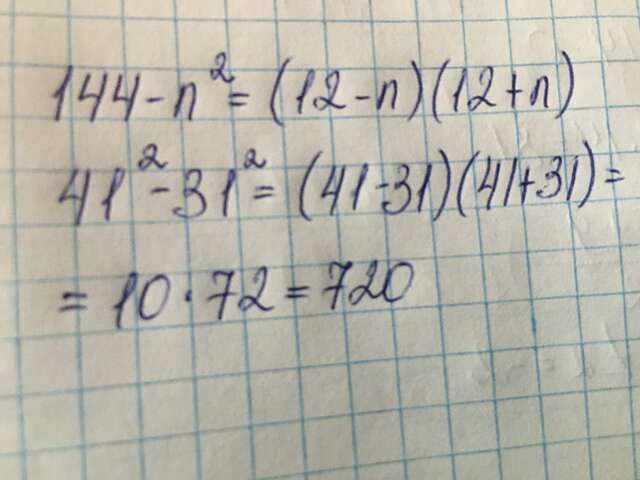 144-n²=(12-n)(12+n)
41²-31²=(41-31)(41+31)=
=10·72=720